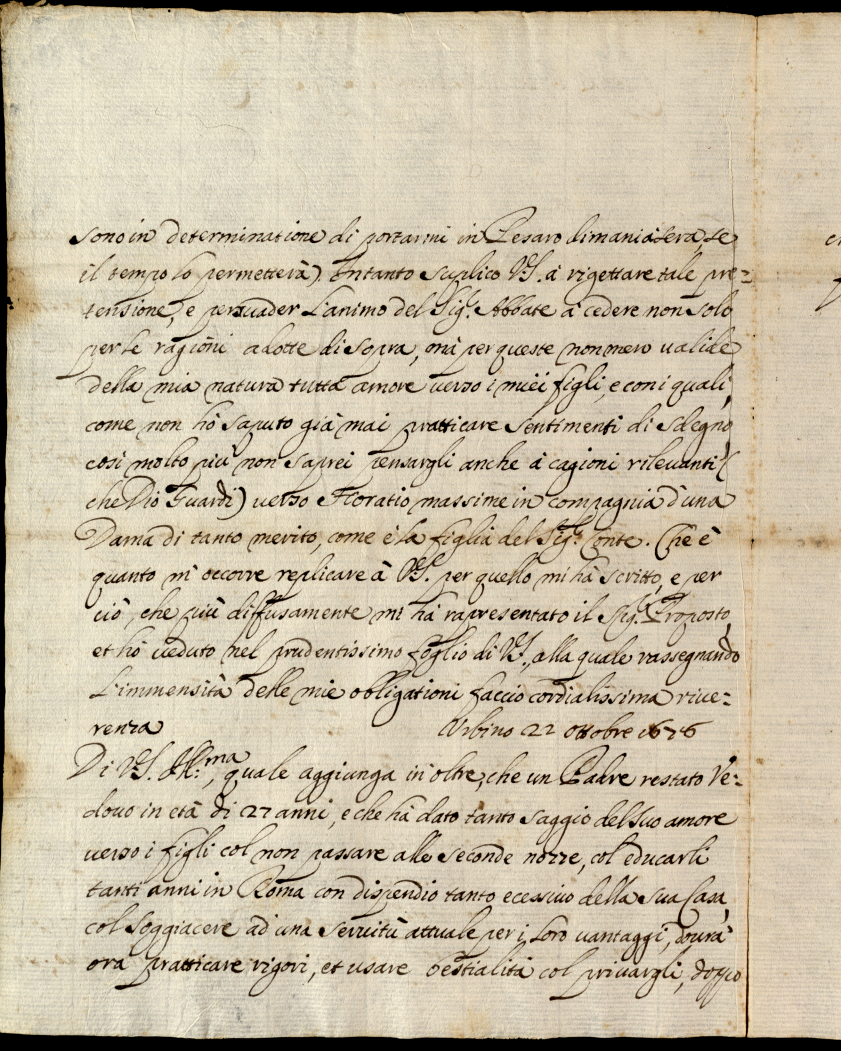 sono in determinatione di portarmi in Pesaro dimani à sera, se
il tempo lo permetterà). Intanto suplico V.S. à rigettare tale pre=
tensione, e persuader l'animo del Sig.r Abbate à cedere non solo
per le ragioni adotte di sopra, mà per queste non meno valide
della mia natura tutta amore verso i miei figli, e con i quali,
come non hò saputo già mai pratticare sentimenti di sdegno,
così molto più non saprei pensargli anche à cagioni rilevanti (
che Dio Guardi) verso Horatio massime in compagnia d'una
Dama di tanto merito, come è la figlia del Sig.r Conte. Che è
quanto m'occorre replicare à V.S. per quello mi hà scritto, e per
ciò, che più diffusamente mi hà rapresentato il Sig.r Proposto,
et hò veduto nel prudentissimo foglio di V.S., alla quale rassegnando
l'immensità delle mie obligationi faccio cordialissima rive=
renza Urbino 22 ottobre 1676
Di V.S. Ill.ma, quale aggiunga in oltre, che un Padre restato Ve=
dovo in età di 27 anni, e che hà dato tanto saggio del suo amore
verso i figli col non passare alle seconde nozze, col educarli
tanti anni in Roma con dispendio tanto ecessivo della sua Casa,
col soggiacere ad una servitù attuale per i loro vantaggi, dovrà
ora pratticare rigori, et usare bestialità col privargli, doppo